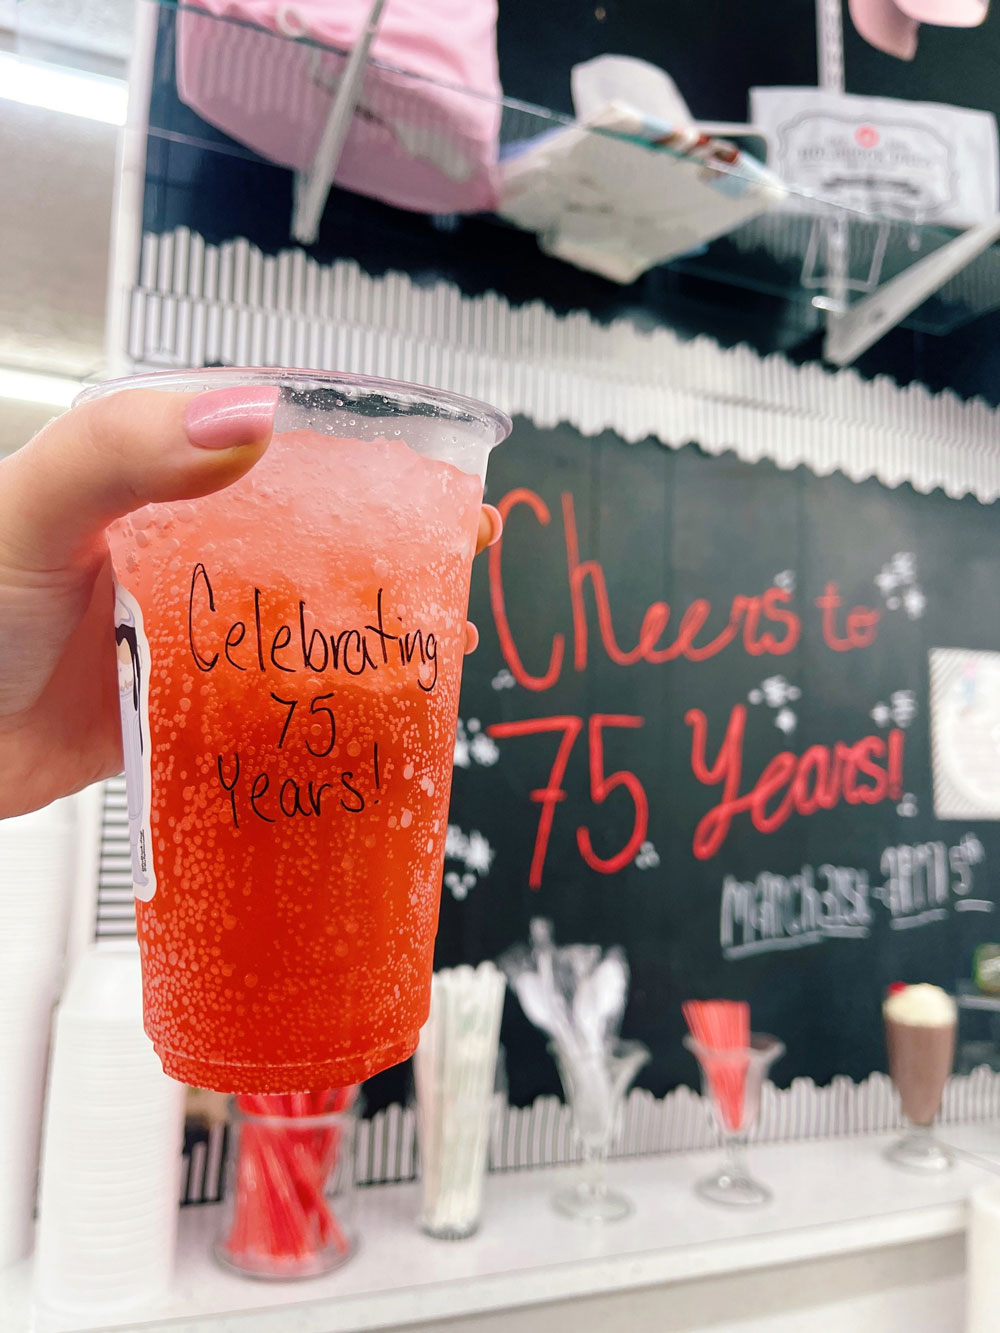 Celebrating
75
Years!
Cheers to
75 Years!
March 31st - April 5th